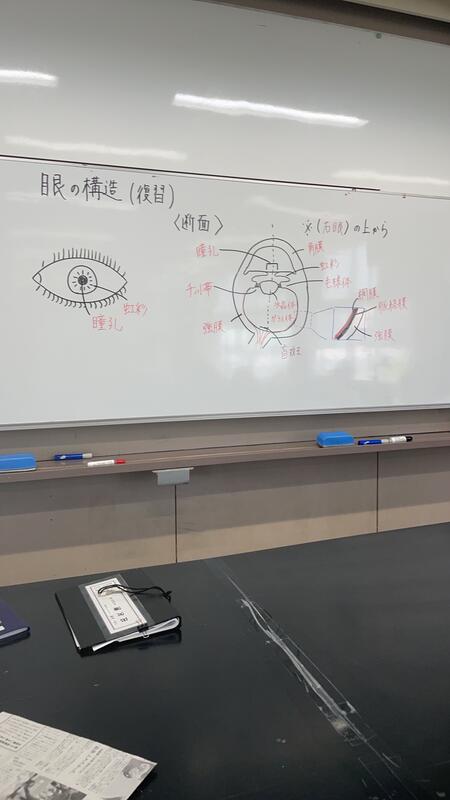 眼の構造(復習)
〈断面〉
※(右眼)の上から
瞳孔
角膜
虹彩
チン小帯
毛様体
水晶体
ガラス体
網膜
脈絡膜
強膜
強膜
盲斑
虹彩
瞳孔